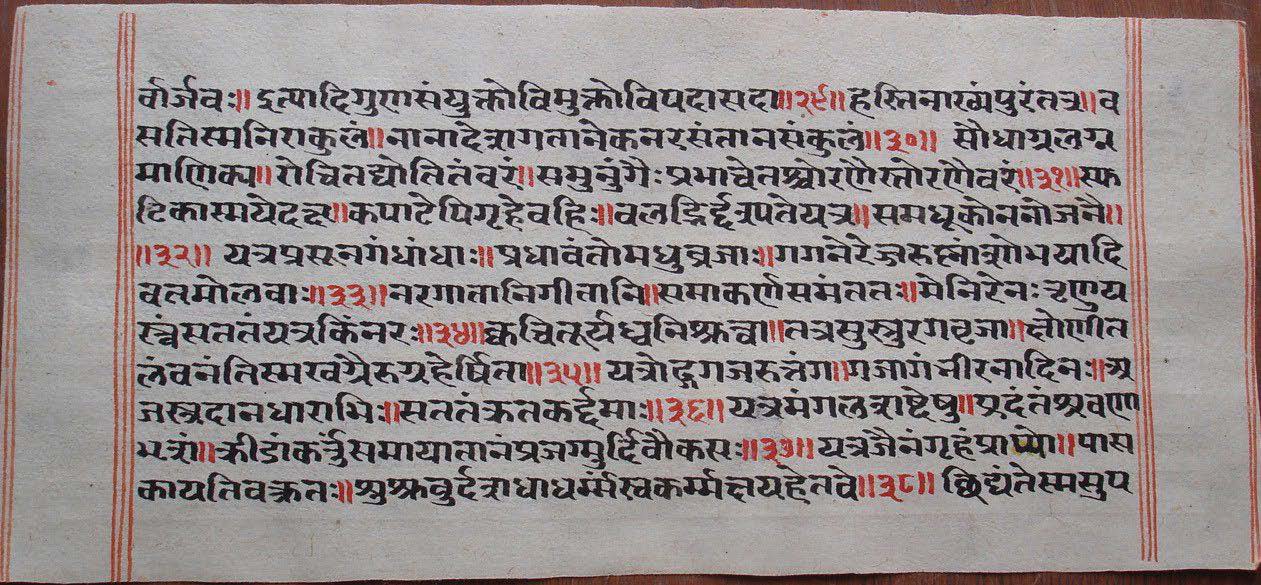 र्वार्जवः॥ इत्यादिगुणसंयुक्तोविमुक्तोविपदासदा॥२९॥हस्तिनाख्यंपुरंतत्र॥व
सतिस्मनिराकुलं॥नानादेशागतानेकनरसंतानसंकुलं॥३०॥ सौधाग्रलग्न
माणिक्य॥रोचितद्योतितंवरं॥समुत्तुंगैःप्रभाचेतश्चोरणैस्तोरणैवरं॥३१॥स्फ
टिकास्मयेद॥कपाटेपिगृहेवहिः॥वलद्भिर्द्दश्यतेयत्र॥समधूकोननोजनै॥
॥३२॥ यत्रप्रसूनगंधांधाः॥प्रधावंतोमधुव्रजाः॥गगनेरेजरुत्नांशोभयादि
वतमोलवाः॥३३॥नरगातानिगीतानि॥समाकर्णसमंततः॥मेनिरेनः
स्त्वंसततंयत्रकिंनरः॥३४॥क्वचित्तूर्यध्वनिश्रुत्वा॥तत्रसुस्तुरगवृजा॥क्षोणीत
लंवनंतिस्मखग्रैरुग्रहेर्षिता॥३५॥ यत्रोद्गगजरुत्तंग॥गजागंभीरनादिनः॥अ
जस्रदानधाराभिः॥सततंकृतकर्द्दमाः॥३६॥ यत्रमंगलतराष्टेषु॥प्रदंतंश्रवण
भत्रां॥क्रीडांकर्त्तुसमायातानंप्रजग्मुर्दिवौकसः॥३७॥यत्रजैनंगृहंप्राप्यो॥पास
कायतिवक्रतः॥शुश्रुवुर्दशधाधर्म्मंस्वकर्म्मक्षयहेतवे॥३८॥ छिद्यंतेस्मसुप